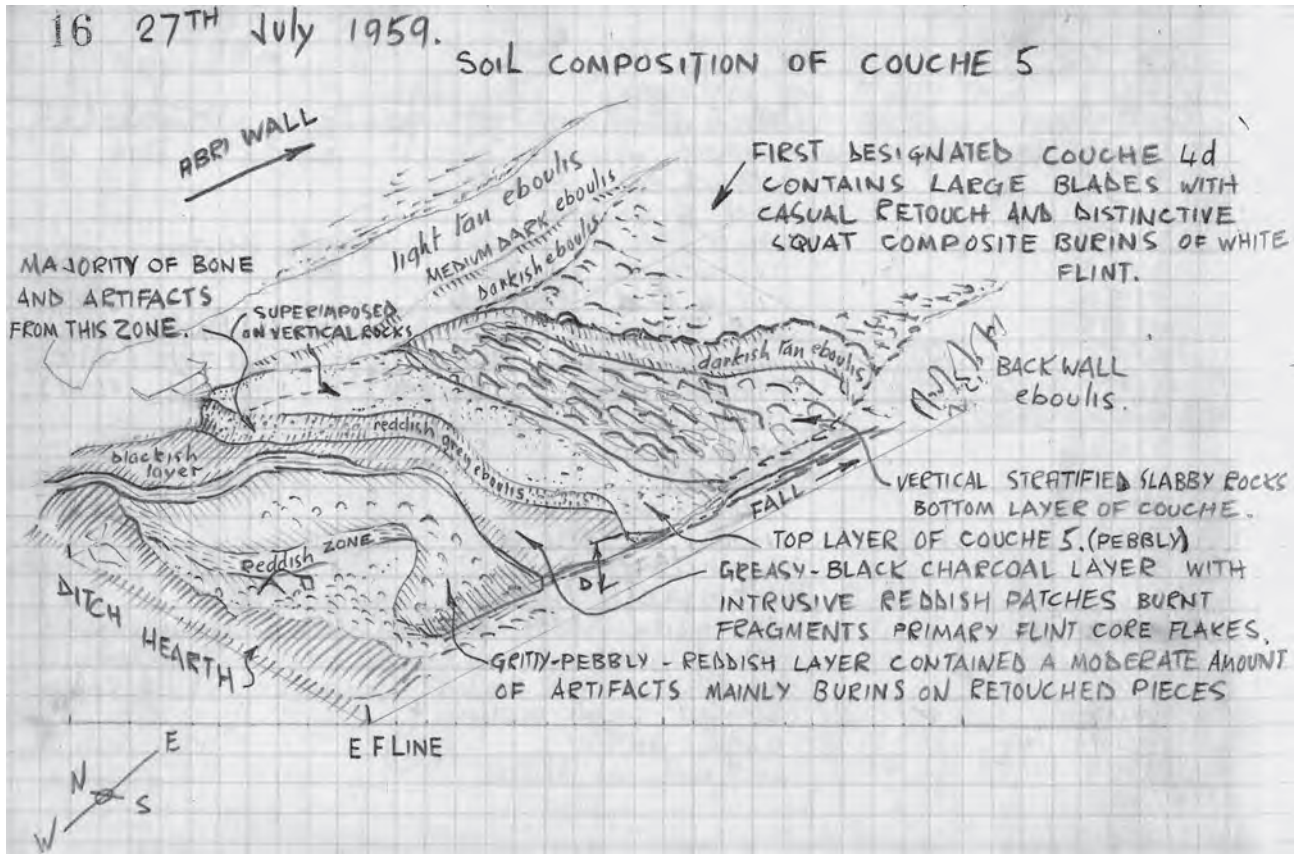 16 27TH July 1959.
SOIL COMPOSITION OF COUCHE 5
ABRI WALL
FIRST DESIGNATED COUCHE 4d
CONTAINS LARGE BLADES WITH
CASUAL RETOUCH AND DISTINCTIVE
SQUAT COMPOSITE BURINS OF WHITE
FLINT.
light tan eboulis
MEDIUM DARK eboulis
Darkish eboulis
MAJORITY OF BONE
AND ARTIFACTS
FROM THIS ZONE.
SUPERIMPOSED
ON VERTICAL ROCKS
darkish tan eboulis
BACK WALL
eboulis.
reddish grey eboulis
blackish
layer
VERTICAL STRATIFIED SLABBY ROCKS
BOTTOM LAYER OF COUCHE.
FALL
TOP LAYER OF COUCHE 5. (PEBBLY)
Reddish ZONE
D
GREASY-BLACK CHARCOAL LAYER WITH
INTRUSIVE REDDISH PATCHES BURNT
FRAGMENTS PRIMARY FLINT CORE FLAKES.
DITCH HEARTHS
GRITTY-PEBBLY-REDDISH LAYER CONTAINED A MODERATE AMOUNT
OF ARTIFACTS MAINLY BURINS ON RETOUCHED PIECES
E F LINE
E
N
S
W